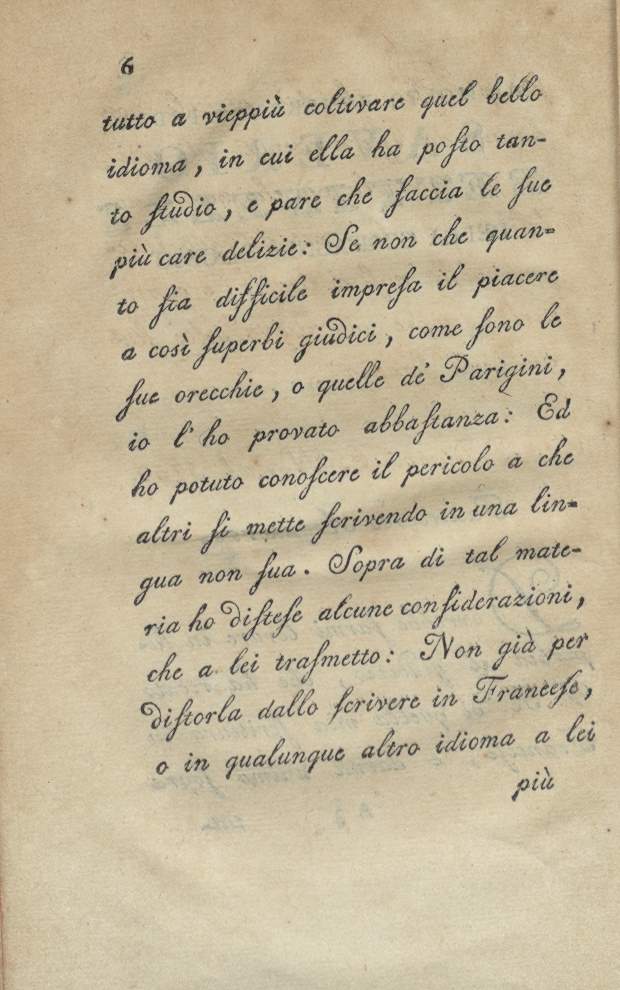 6
tutto a vieppiù coltivare quel bello
idioma, in cui ella ha poſto tan-
to ſtudio, e pare che faccia le ſue
più care delizie: Se non che quan=
to ſia difficile impreſa il piacere
a così ſuperbi giudici, come ſono le
ſue orecchie, o quelle de' Parigini,
io l'ho provato abbaſtanza: Ed
ho potuto conoſcere il pericolo a che
altri ſi mette ſcrivendo in una lin=
gua non ſua. Sopra di tal mate-
ria ho diſteſe alcune conſiderazioni,
che a lei traſmetto: Non già per
diſtorla dallo ſcrivere in Franceſe,
o in qualunque altro idioma a lei
più